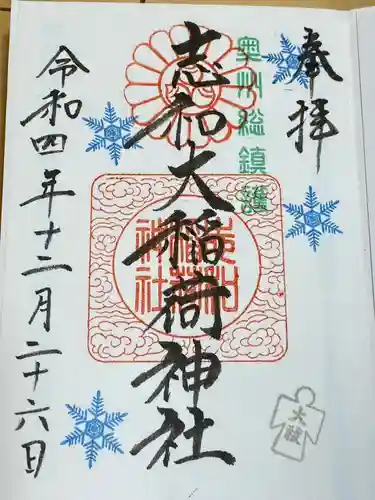 奉拝
奥州総鎮護
志和大稲荷神社
志和稲荷神社
令和四年十二月二十六日
大祓